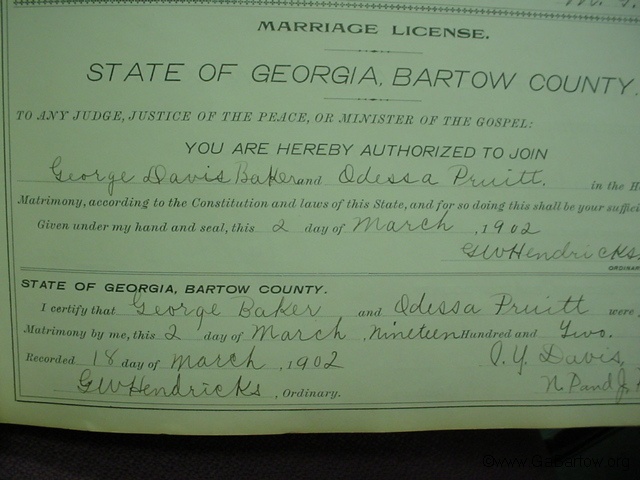 MARRIAGE LICENSE.
STATE OF GEORGIA, BARTOW COUNTY.
TO ANY JUDGE, JUSTICE OF THE PEACE, OR MINISTER OF THE GOSPEL:
YOU ARE HEREBY AUTHORIZED TO JOIN
George Davis Baker and Odessa Pruitt. in the H
Matrimony, according to the Constitution and laws of this State, and for so doing this shall be your suffici
Given under my hand and seal, this 2 day of March, 1902
GWHendricks
ORDINAR
STATE OF GEORGIA, BARTOW COUNTY.
I certify that George Baker and Odessa Pruitt were
Matrimony by me, this 2 day of March, Nineteen Hundred and Two.
Recorded 18 day of March, 1902 J. Y. Davis,
GWHendricks, Ordinary. N. P. and J.